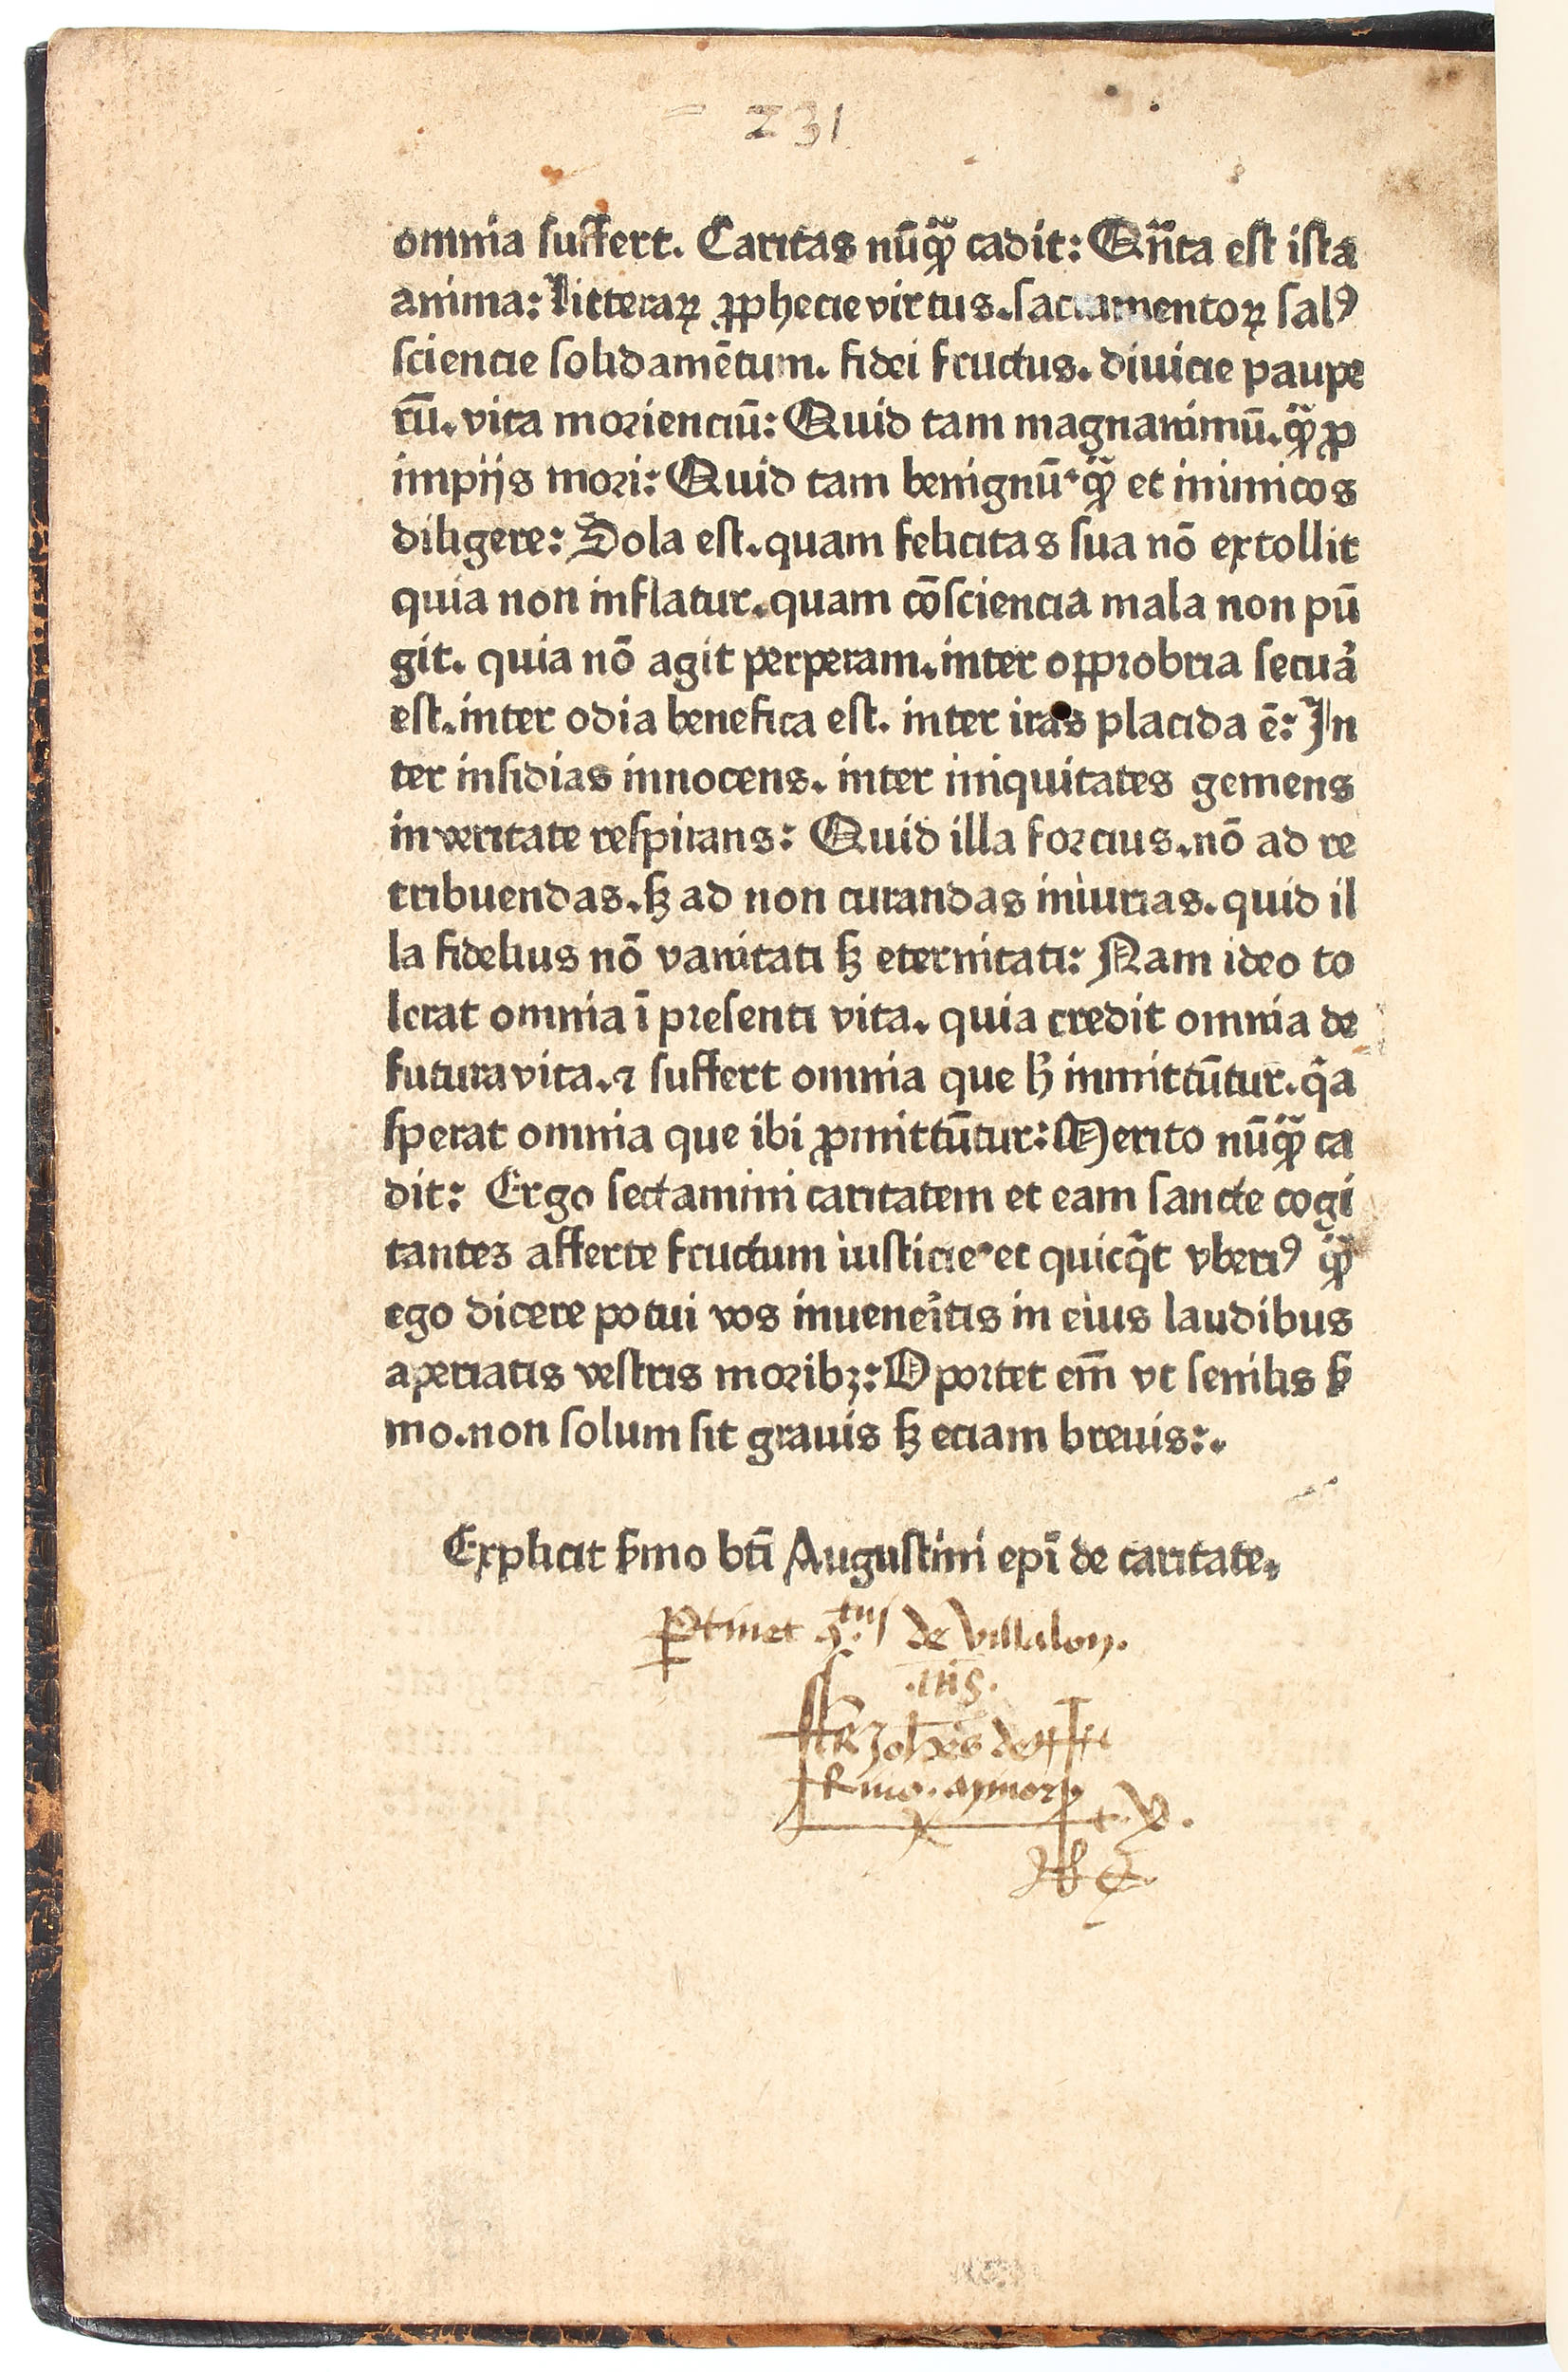 231
omnia suffert. Caritas nūq̃ꝫ cadit: Qñta est ista
anima: litteraꝝ ꝓphecie virtus. sacramentoꝝ salꝰ
sciencie solidamētum. fidei fructus. diuicie paupe
rū. vita morienciū: Quid tam magnanimū. q̃ꝫ ꝓ
impijs mori: Quid tam benignū. q̃ꝫ et inimicos
diligere: Sola est. quam felicitas sua nō extollit
quia non inflatur. quam cōsciencia mala non pū
git. quia nō agit perperam. inter oꝓprobria secua᷑
est. inter odia benefica est. inter iras placida ē: In
ter insidias innocens. inter iniquitates gemens
in veritate respirans: Quid illa forcius. nō ad re
tribuendas. sꝫ ad non curandas iniurias. quid il
la fidelius nō vanitati sꝫ eternitati: Nam ideo to
lerat omnia ī presenti vita. quia credit omnia de
futura vita. ⁊ suffert omnia que hͥ inmittūtur. q̄a
sperat omnia que ibi ꝓmittūtur: Merito nūq̃ꝫ ca
dit: Ergo sectamini caritatem et eam sancte cogi
tantes afferte fructum iusticie. et quicq̄t vberiꝰ q̃ꝫ
ego dicere potui vos inuene᷑itis in eius laudibus
aperiatis vestris moribꝫ: Oportet em̄ vt senilis ẜ
mo. non solum sit grauis sꝫ eciam breuis:.
Explicit ẜmo bt̄i Augustini ep̄i de caritate.
Ꝑtinet de Villalon.
Joh̄es de